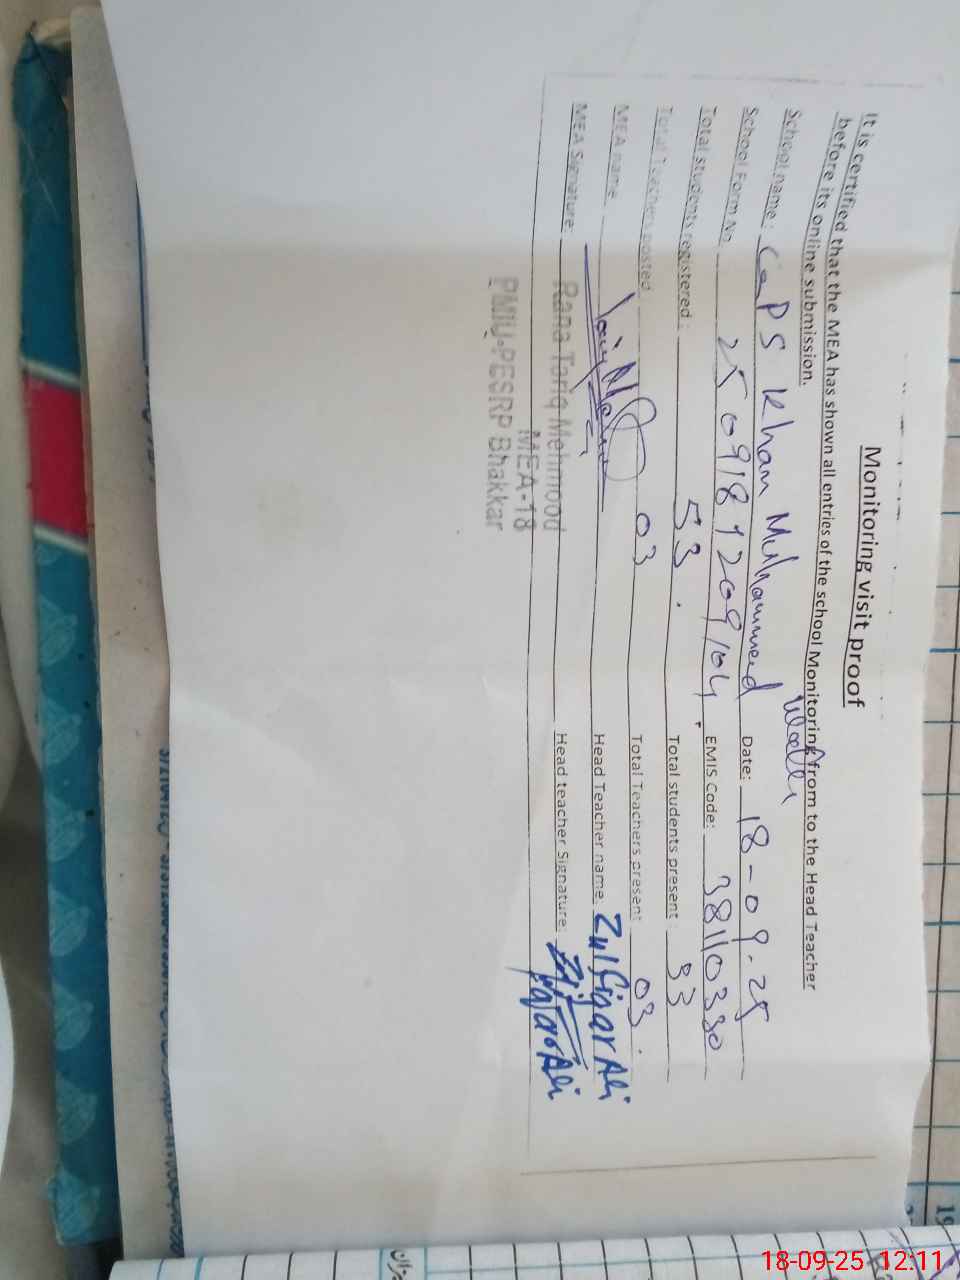 Monitoring visit proof
It is certified that the MEA has shown all entries of the school Monitoring from to the Head Teacher
before its online submission.
School name: GPS Khan Muhammad Date: 18-09-25
School Form No 25091811209104 EMIS Code: 38110330
Total students registered: 53 Total students present: 33
Total Teachers posted: 03 Total Teachers present: 03
MEA name Head Teacher name: Zulfiqar Ali
MEA Signature: Head teacher Signature:
Rana Tariq Mehmood
MEA-18
PMIU-PESRP Bhakkar
18-09-25 12:11